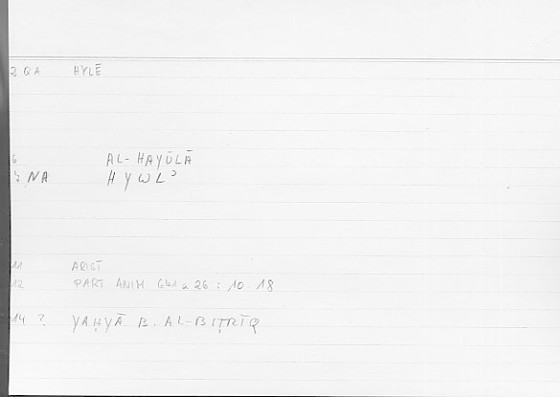 2 QA HYLĒ
6 AL-HAYŪLĀ
7 NA HYWLʾ
11 ARIST
12 PART ANIM 641 a 26 : 10.18
14 ? YAḤYĀ B. AL-BIṬRĪQ